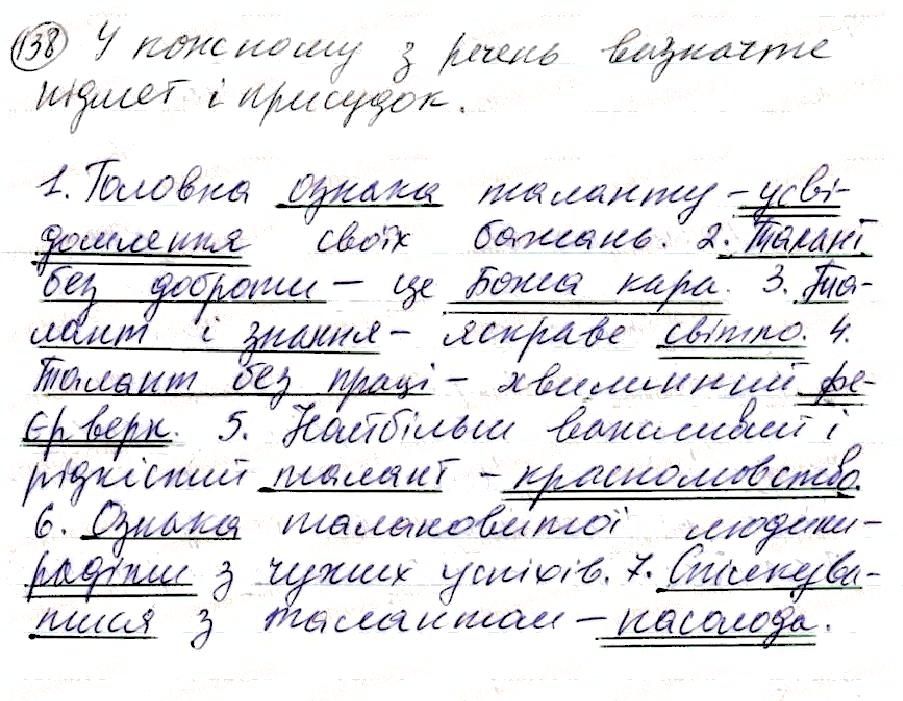 138 У кожному з речень визначте
підмет і присудок.
1. Головна ознака таланту – усві-
домлення своїх бажань. 2. Талант
без доброти – це Божа кара. 3. Та-
лант і знання – яскраве світло. 4.
Талант без праці – хвилинний фе-
єрверк. 5. Найбільш важливий і
рідкісний талант – красномовство.
6. Ознака талановитої людини –
радіти з чужих успіхів. 7. Спілкува-
тися з талантом – насолода.